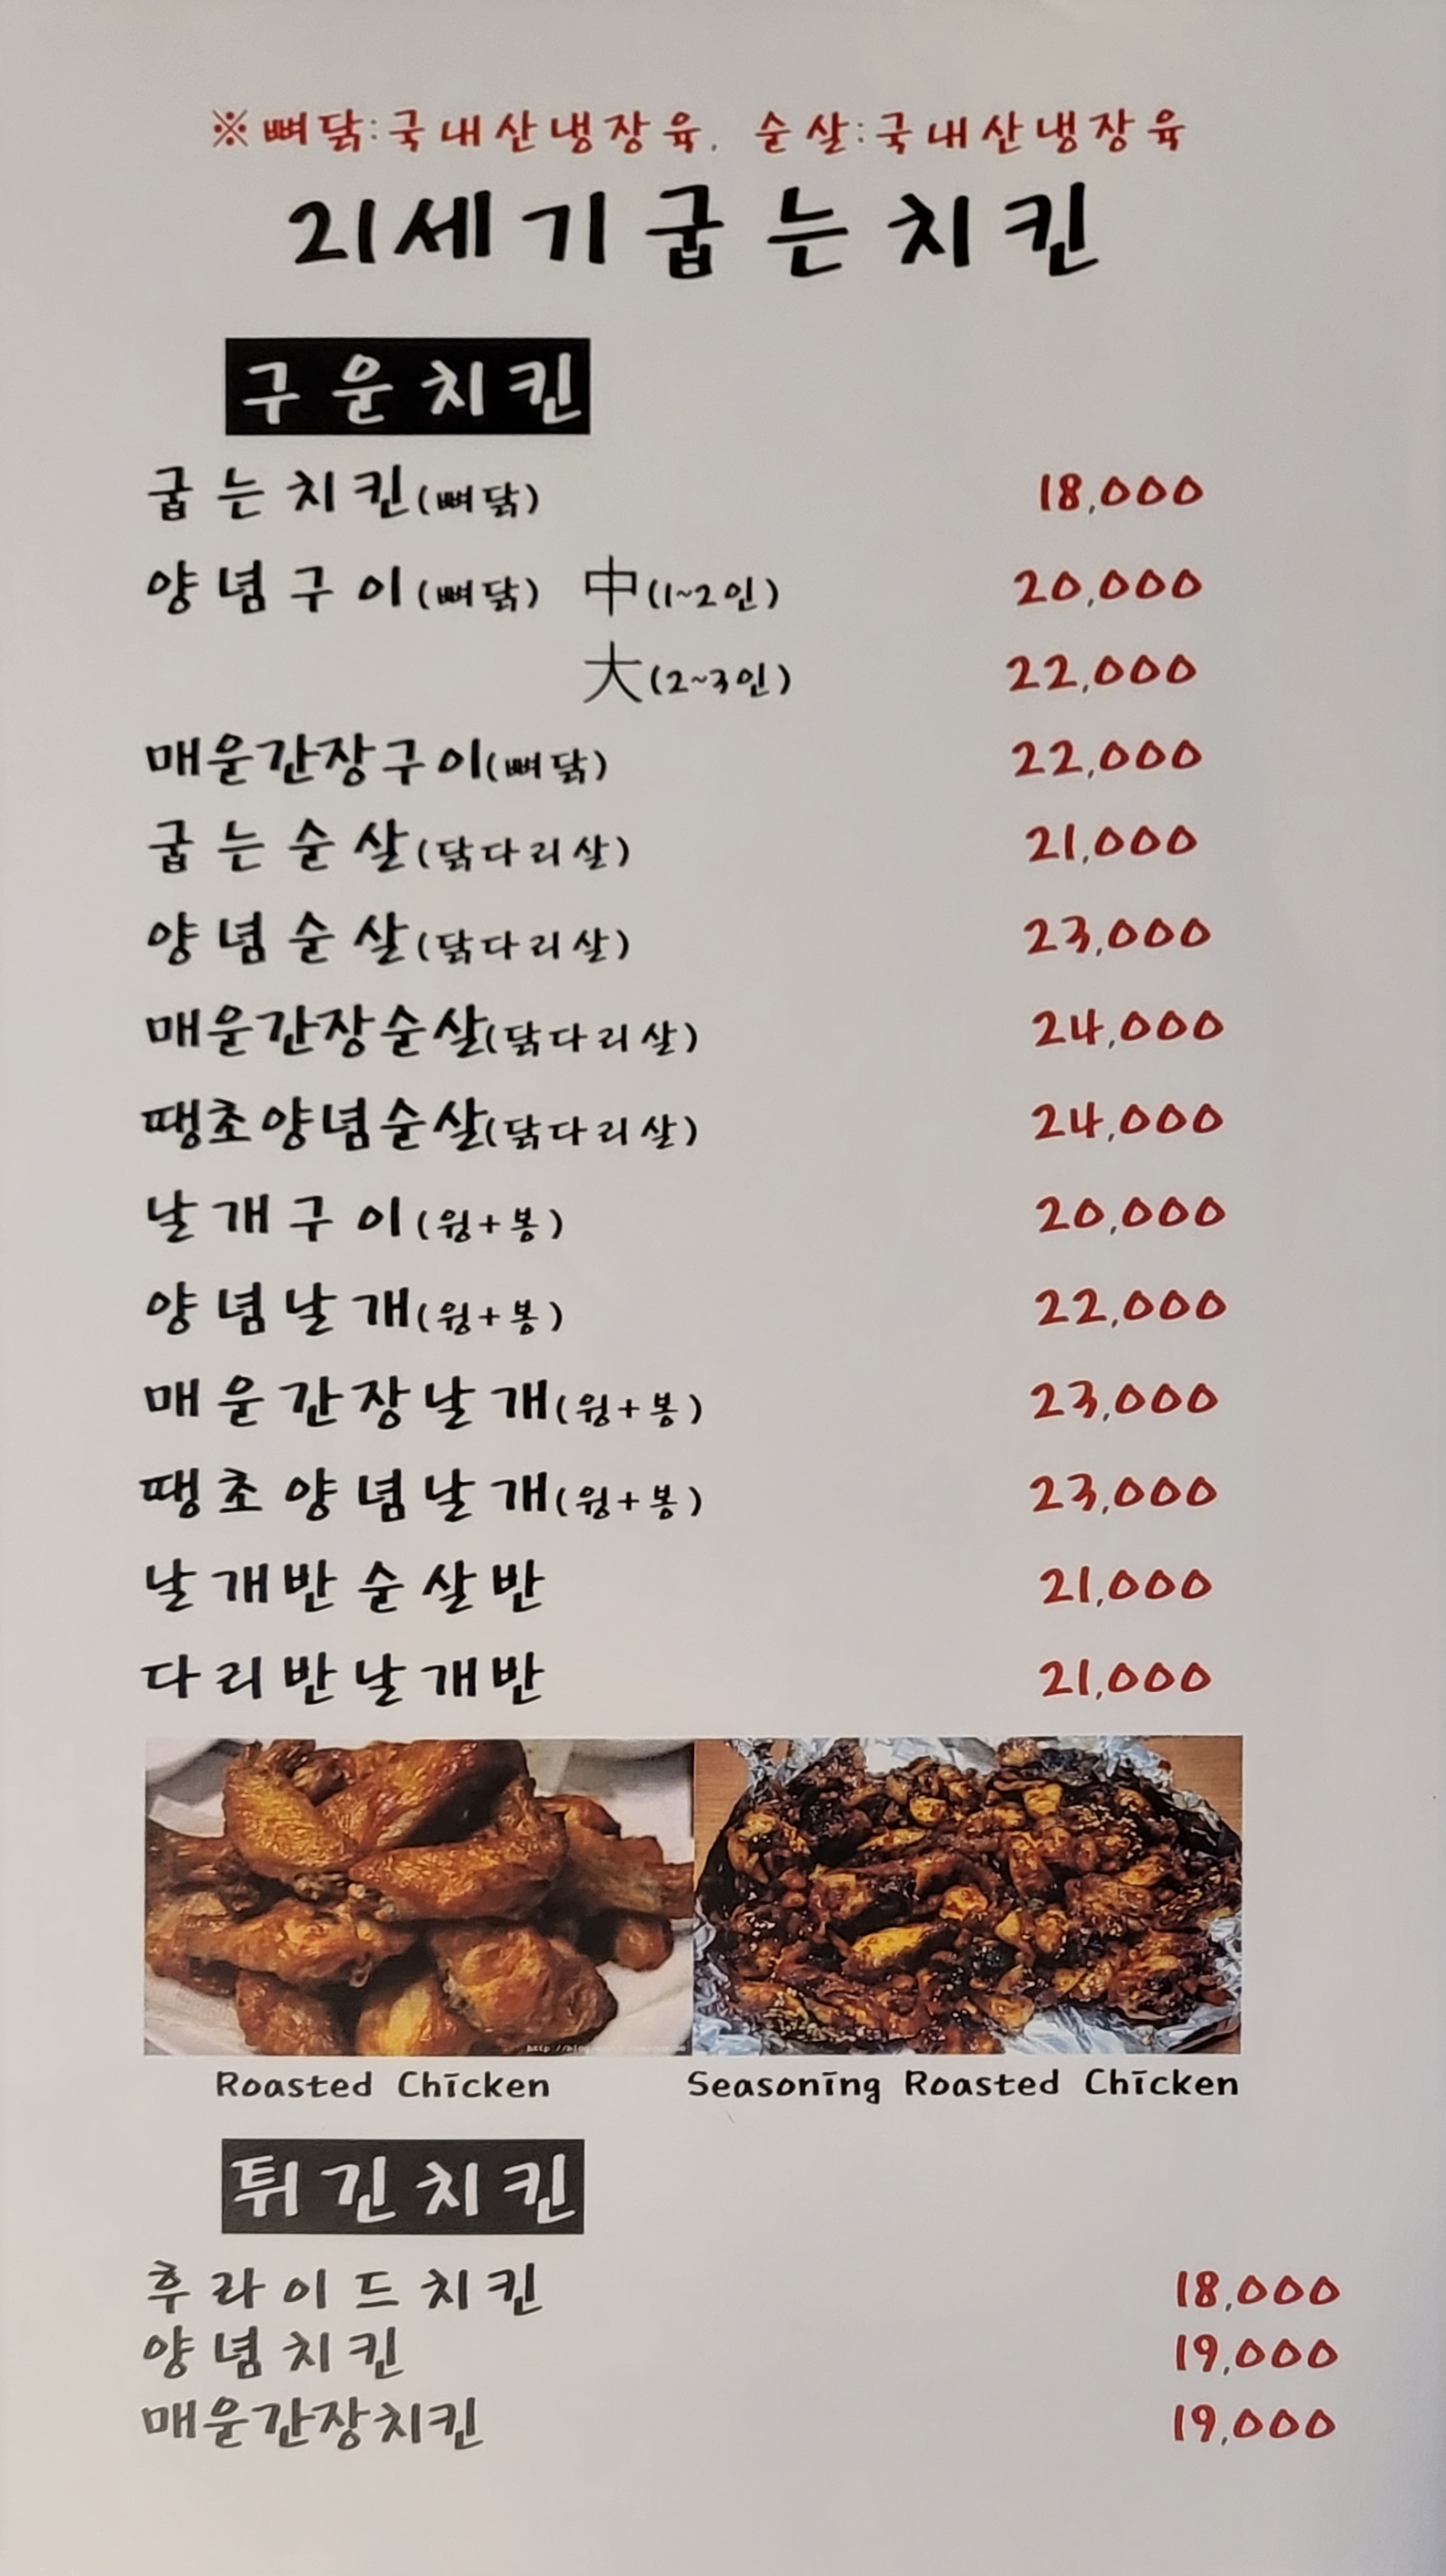 ※뼈닭:국내산냉장육, 순살:국내산냉장육
21세기굽는치킨
구운치킨
굽는치킨(뼈닭) 18,000
양념구이(뼈닭) 中(1~2인) 20,000
大(2~3인) 22,000
매운간장구이(뼈닭) 22,000
굽는순살(닭다리살) 21,000
양념순살(닭다리살) 23,000
매운간장순살(닭다리살) 24,000
땡초양념순살(닭다리살) 24,000
날개구이(윙+봉) 20,000
양념날개(윙+봉) 22,000
매운간장날개(윙+봉) 23,000
땡초양념날개(윙+봉) 23,000
날개반순살반 21,000
다리반날개반 21,000
Roasted Chicken Seasoning Roasted Chicken
튀긴치킨
후라이드치킨 18,000
양념치킨 19,000
매운간장치킨 19,000